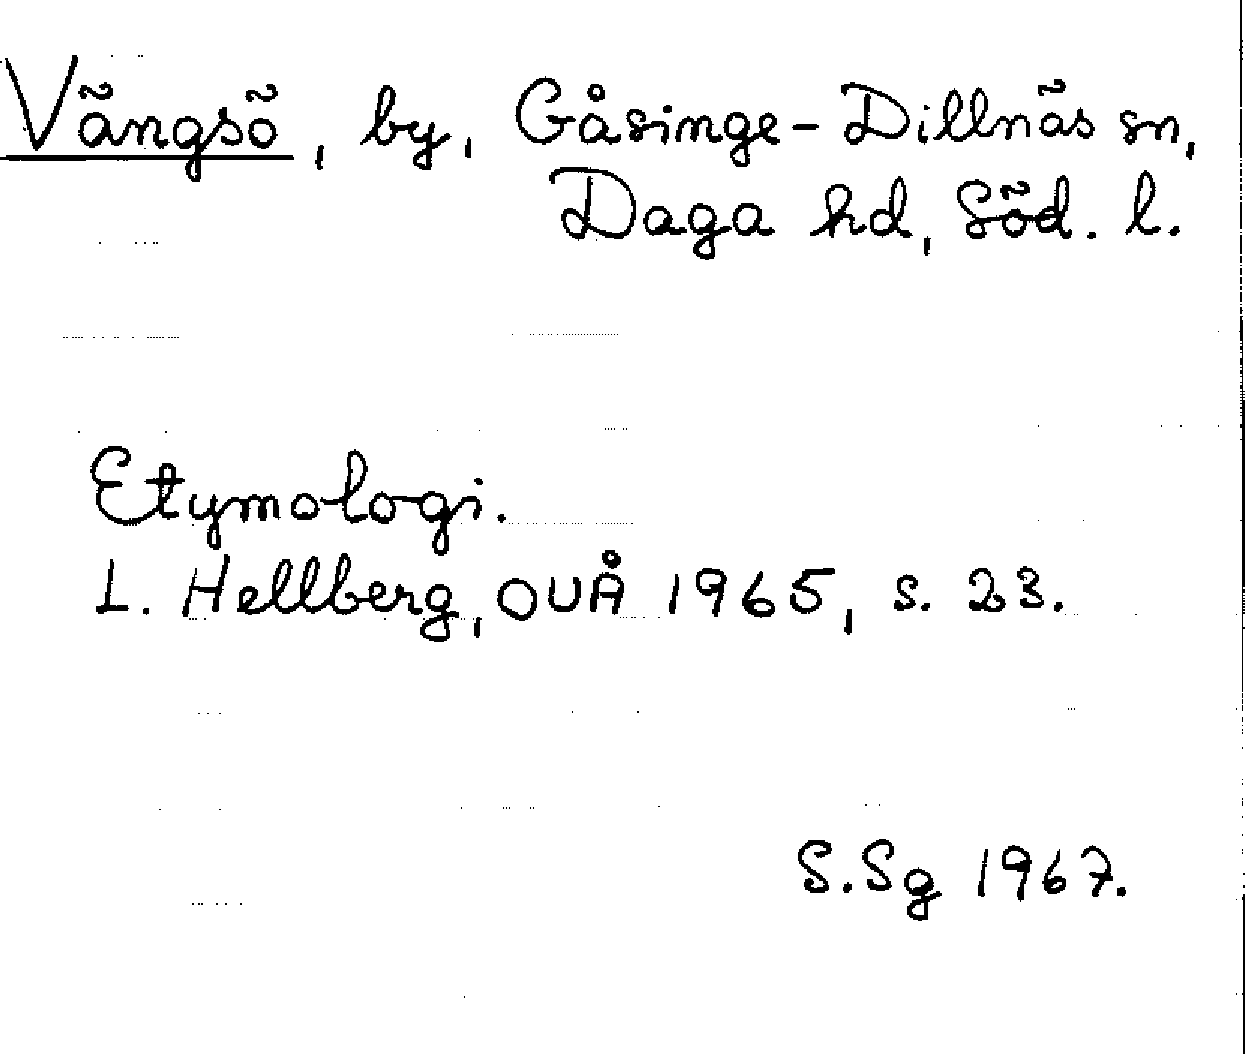 Vängsö, by, Gåsinge-Dillnäs sn,
Daga hd, Söd. l.
Etymologi.
L. Hellberg, OUÅ 1965, s. 23.
S.Sg 1967.